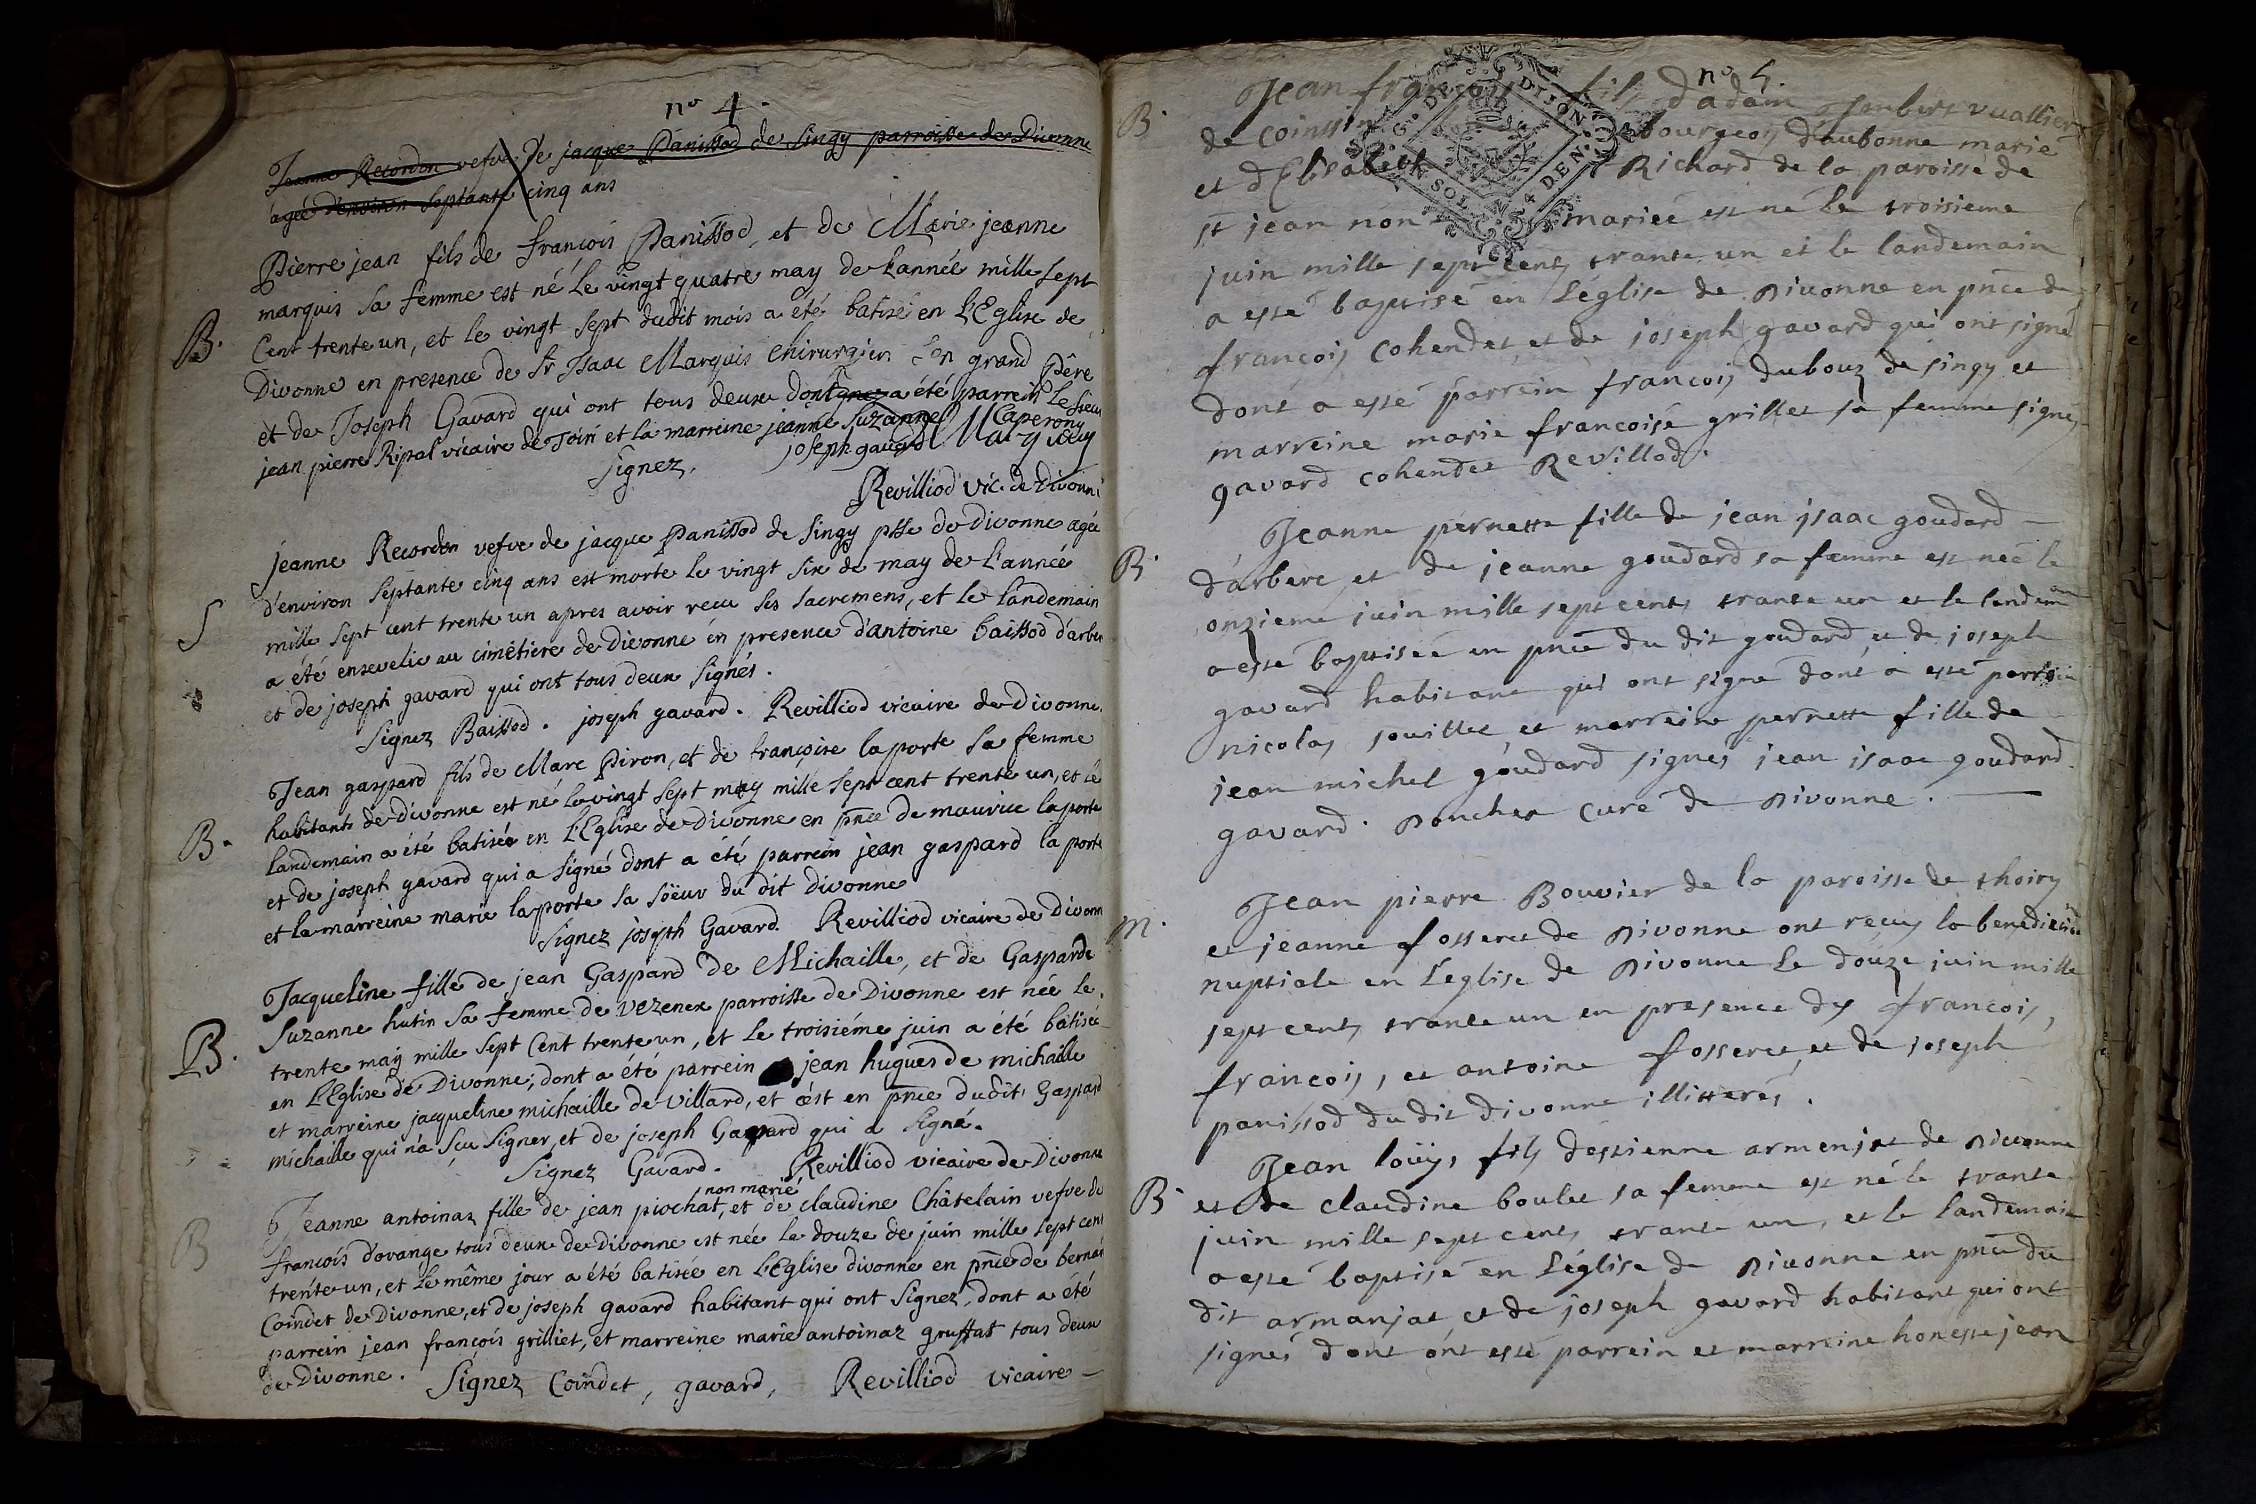 n° 4.
Jeanne Recordon vefve de jacque Panissod de Singy parroisse de Divonne
agée d'environ septante cinq ans
Pierre jean fils de françois Panissod, et de Marie jeanne
marquis sa femme est né le vingt quatre may de l'année mille sept
B. Cent trente un, et le vingt sept dudit mois a été batisé en L'Eglise de
Divonne en presence de Sr Isaac Marquis chirurgien son grand Pére
et de Joseph Gavard qui ont tous deux dont a été parrein le Sieur
jean pierre Ripal vicaire de Toiri et la marreine jeanne Suzanne Caperony
Signez. joseph gavard Marquis
Revilliod vic. de Divonne
jeanne Recordon vefve de jacque Panissod de Singy psse de Divonne agée
d'environ septante cinq ans est morte le vingt six de may de L'année
S mille sept cent trente un apres avoir recu ses sacremens, et le landemain
a été ensevelie au cimêtiere de Divonne en presence d'antoine baissod d'arbere
et de joseph gavard qui ont tous deux signés.
Signez Baissod. joseph gavard. Revilliod vicaire de Divonne.
Jean gaspard fils de Marc Piron, et de françoise laporte sa femme
habitants de divonne est né le vingt sept may mille sept cent trente un, et le
B. landemain a été batisée en L'Eglise de Divonne en pnce de maurice laporte
et de joseph gavard qui a signé dont a été parrein jean gaspard la porte
et la marreine marie laporte sa söeur du dit Divonne
Signez joseph Gavard. Revilliod vicaire de Divonne
Jacqueline fille de jean Gaspard de Michaille, et de Gasparde
Suzanne hutin sa femme de Vezenex parroisse de Divonne est née le
B. trente maÿ mille sept Cent trente un, et le troisiéme juin a été batisée
en L'Eglise de Divonne; dont a été parrein jean hugues de michaille
et marreine jacqueline michaille de Villard, et c'est en pnce dudit Gaspard
michaille qui n'a sçu signer, et de joseph Gavard qui a signé.
Signez Gavard. Revilliod vicaire de Divonne
non marié
Jeanne antoinaz fille de jean piochat, et de claudine Châtelain vefve de
B françois dovange tous deux de Divonne est née le douze de juin mille sept cent
trente un, et le même jour a été batisée en L'Eglise divonne en pnce de bernard
Coindet de Divonne, et de joseph gavard habitant qui ont signez, dont a été
parrein jean françois grilliet, et marreine marie antoinaz gruffat tous deux
de Divonne. Signez Coindet, gavard, Revilliod vicaire
n° 5.
B. Jean françois fils d'adam Imbert vuallier
de Coinssin bourgeois d'aubonne marié
et d'Elisabeth Richard de la paroisse de
st jean non mariée est né le troisieme
juin mille sept cents trante un et le landemain
a esté baptisé en L'église de Divonne en pnce de
françois Cohendet et de joseph gavard qui ont signé
dont a esté parrein françois dubouz de singy et
marreine marie francoise grillet sa femme signés
gavard cohendet Revillod.
Jeanne pernette fille de jean jsaac goudard
B. d'arbere, et de jeanne goudard sa femme est née le
onzieme juin mille sept cents trante un et le landemain
a esté baptisée en pnce du dit goudard et de joseph
gavard habitant qui ont signé dont a esté parrein
nicolas souillet et marreine pernette fille de
jean michel goudard signés jean isaac goudard
gavard. Ponchea Curé de Divonne.
Jean pierre Bouvier de la paroisse de thoiry
M. et jeanne fosseret de Divonne ont reçu la benediction
nuptiale en L'eglise de Divonne le douze juin mille
sept cents trante un en presence des francois,
françois, et antoine fosseret, et de joseph
panissod du dit divonne illitterés.
Jean loüys fils d'estienne armenjat de Divonne
B. et de claudine boulet sa femme est né le trante
juin mille sept cents trante un, et le landemain
a esté baptisé en L'église de Divonne en pnce du
dit armanjat et de joseph gavard habitant qui ont
signés dont ont esté parrein et marreine honeste jean